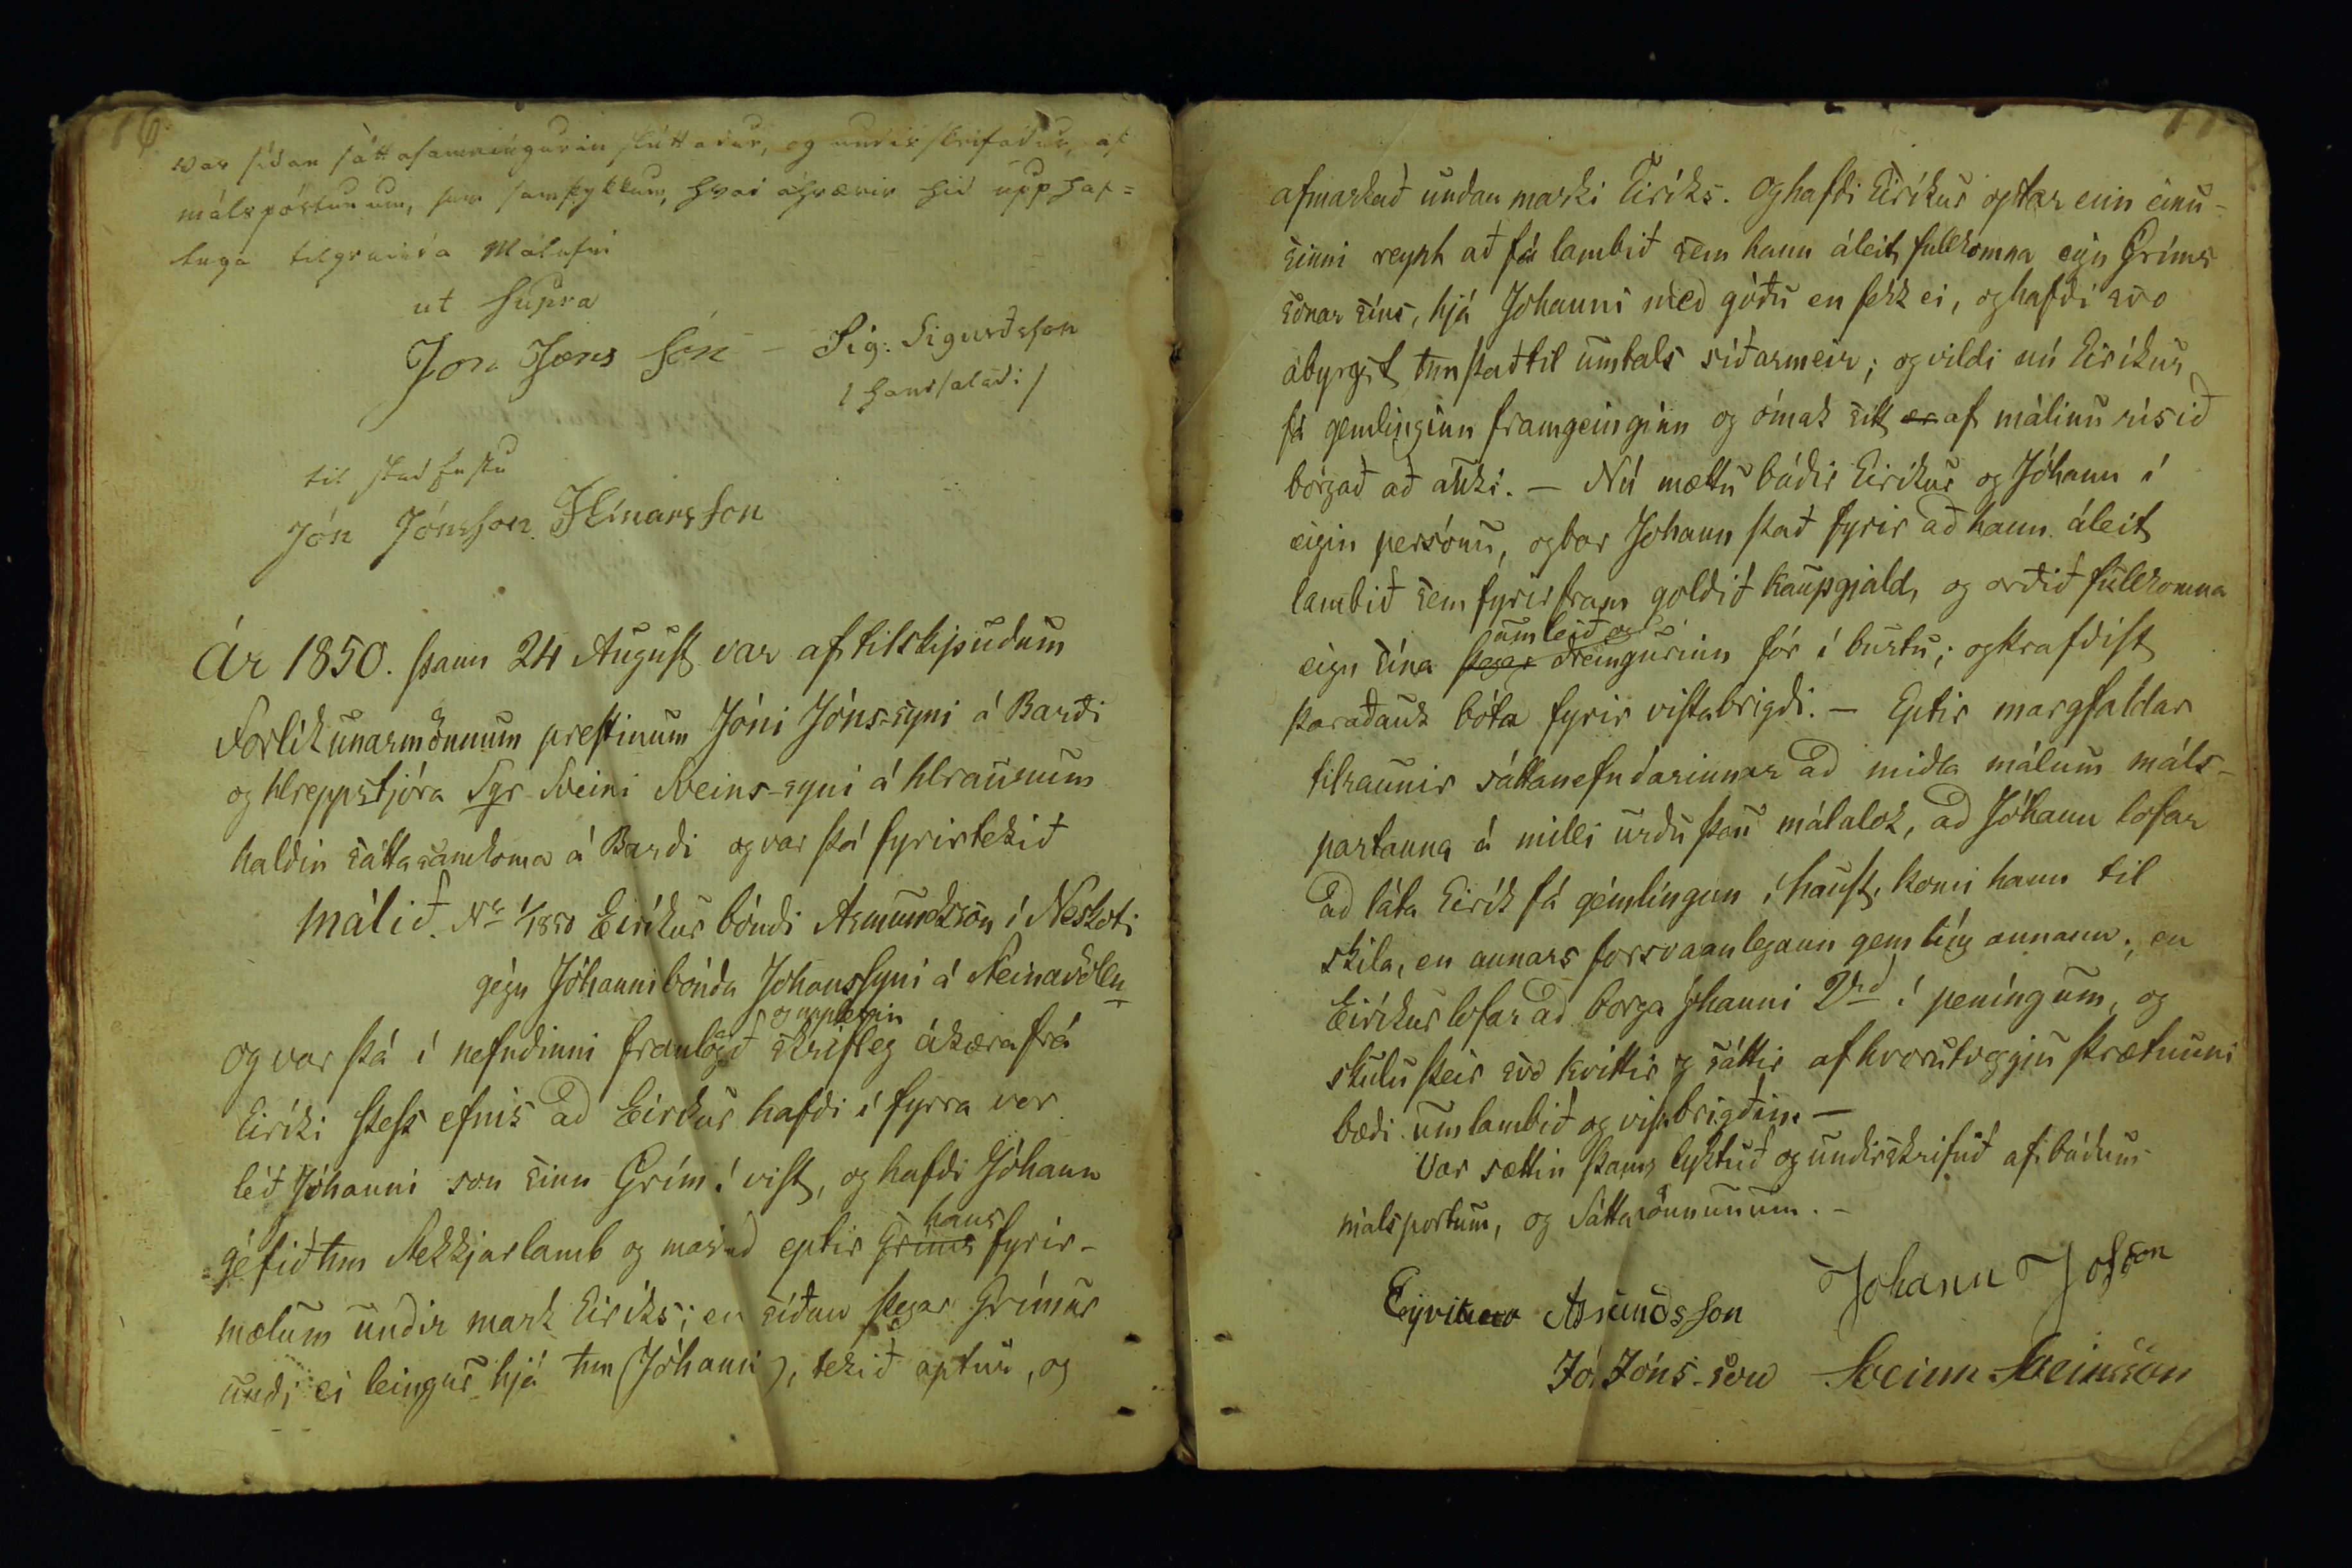 16
var síðan sáttasamníngurin sluttadur, og undirskrifadur, af
málspörtunum, sem samþykkum, hvað áhrærir hið upphaf=
lega tilgreinda Málefni
ut supra
Jon Jons són – Sig: Sigurðsson
/ handsalaði /
til staðfestu
Jón Jónsson. HEinarsson
Ár 1850. þann 24 August var af tilskipudum
Forlíkunarmönnum prestinum Jóni Jóns-syni á Barði
og hreppstjóra Sgr Sveini Sveins-syni á Hraunum
haldin sáttasamkoma á Barði og var þá fyrirtekið
málið. Nr 1/1850 Eiríkur bóndi Asmundsson í Neskoti
gégn Jóhanni bónda Johanssyni á Steinavöllu_
og var þá í nefndinni framlögð og upplesin skrifleg ákæra frá
Eiríki þess efnis að Eirikur hafði í fyrra vor
léð Jóhanni son sinn Grím í vist, og hafði Jóhann
géfið hm Stekkjarlamb og markað eptir Gríms hans fyrir-
mælum undir mark Eiríks; en síðan þegar Grímur
undi ei leingur hjá hm (Jóhanni), tekið aptur, og
17
afmarkað undan marki Eiríks. Og hafði Eiríkur optar enn einu-
sinni reynt að fá lambið sem hann áleit fullkomna eign Gríms
sonar síns, hjá Johanni með góðu en fekk ei, og hafði svo
ábyrgst hm það til umtals síðarmeir; og vildi nú Eiríkur
fá gemlinginn framgeinginn og ómak sitt er af málinu risið
borgað að auki. – Nú mættu báðir Eiríkur og Jóhann í
eigin persónu, og bar Johann það fyrir að hann áleit
lambið sem fyrirfram goldið kaupgjald, og orðið fullkomna
eign sína þegar umleið og dreingurinn fór í burtu; og krafðist
þaraðauk bóta fyrir vistabrigði. – Eptir margfaldar
tilraunir sáttanefndarinnar að miðla málum máls-
partanna á milli urðu þau málalok, að Jóhann lofar
að láta Eirík fá gémlíngun í haust, komi hann til
skila, en annars forsvaanlegann gemlíng annann; en
Eiríkur lofar að borga Jóhanni 2rd í peníngum, og
skulu þeir svo kvittir og sáttir af hvorutveggju þrætunni
bæði um lambið og vistabrigðin –
Var sættin þannig lyktuð og undirskrifuð af báðum
málspörtum, og Sáttamönnunum. –
Eyrikur Asmundsson Johann Josson
Jó. Jóns-son Sveinn Sveinsson